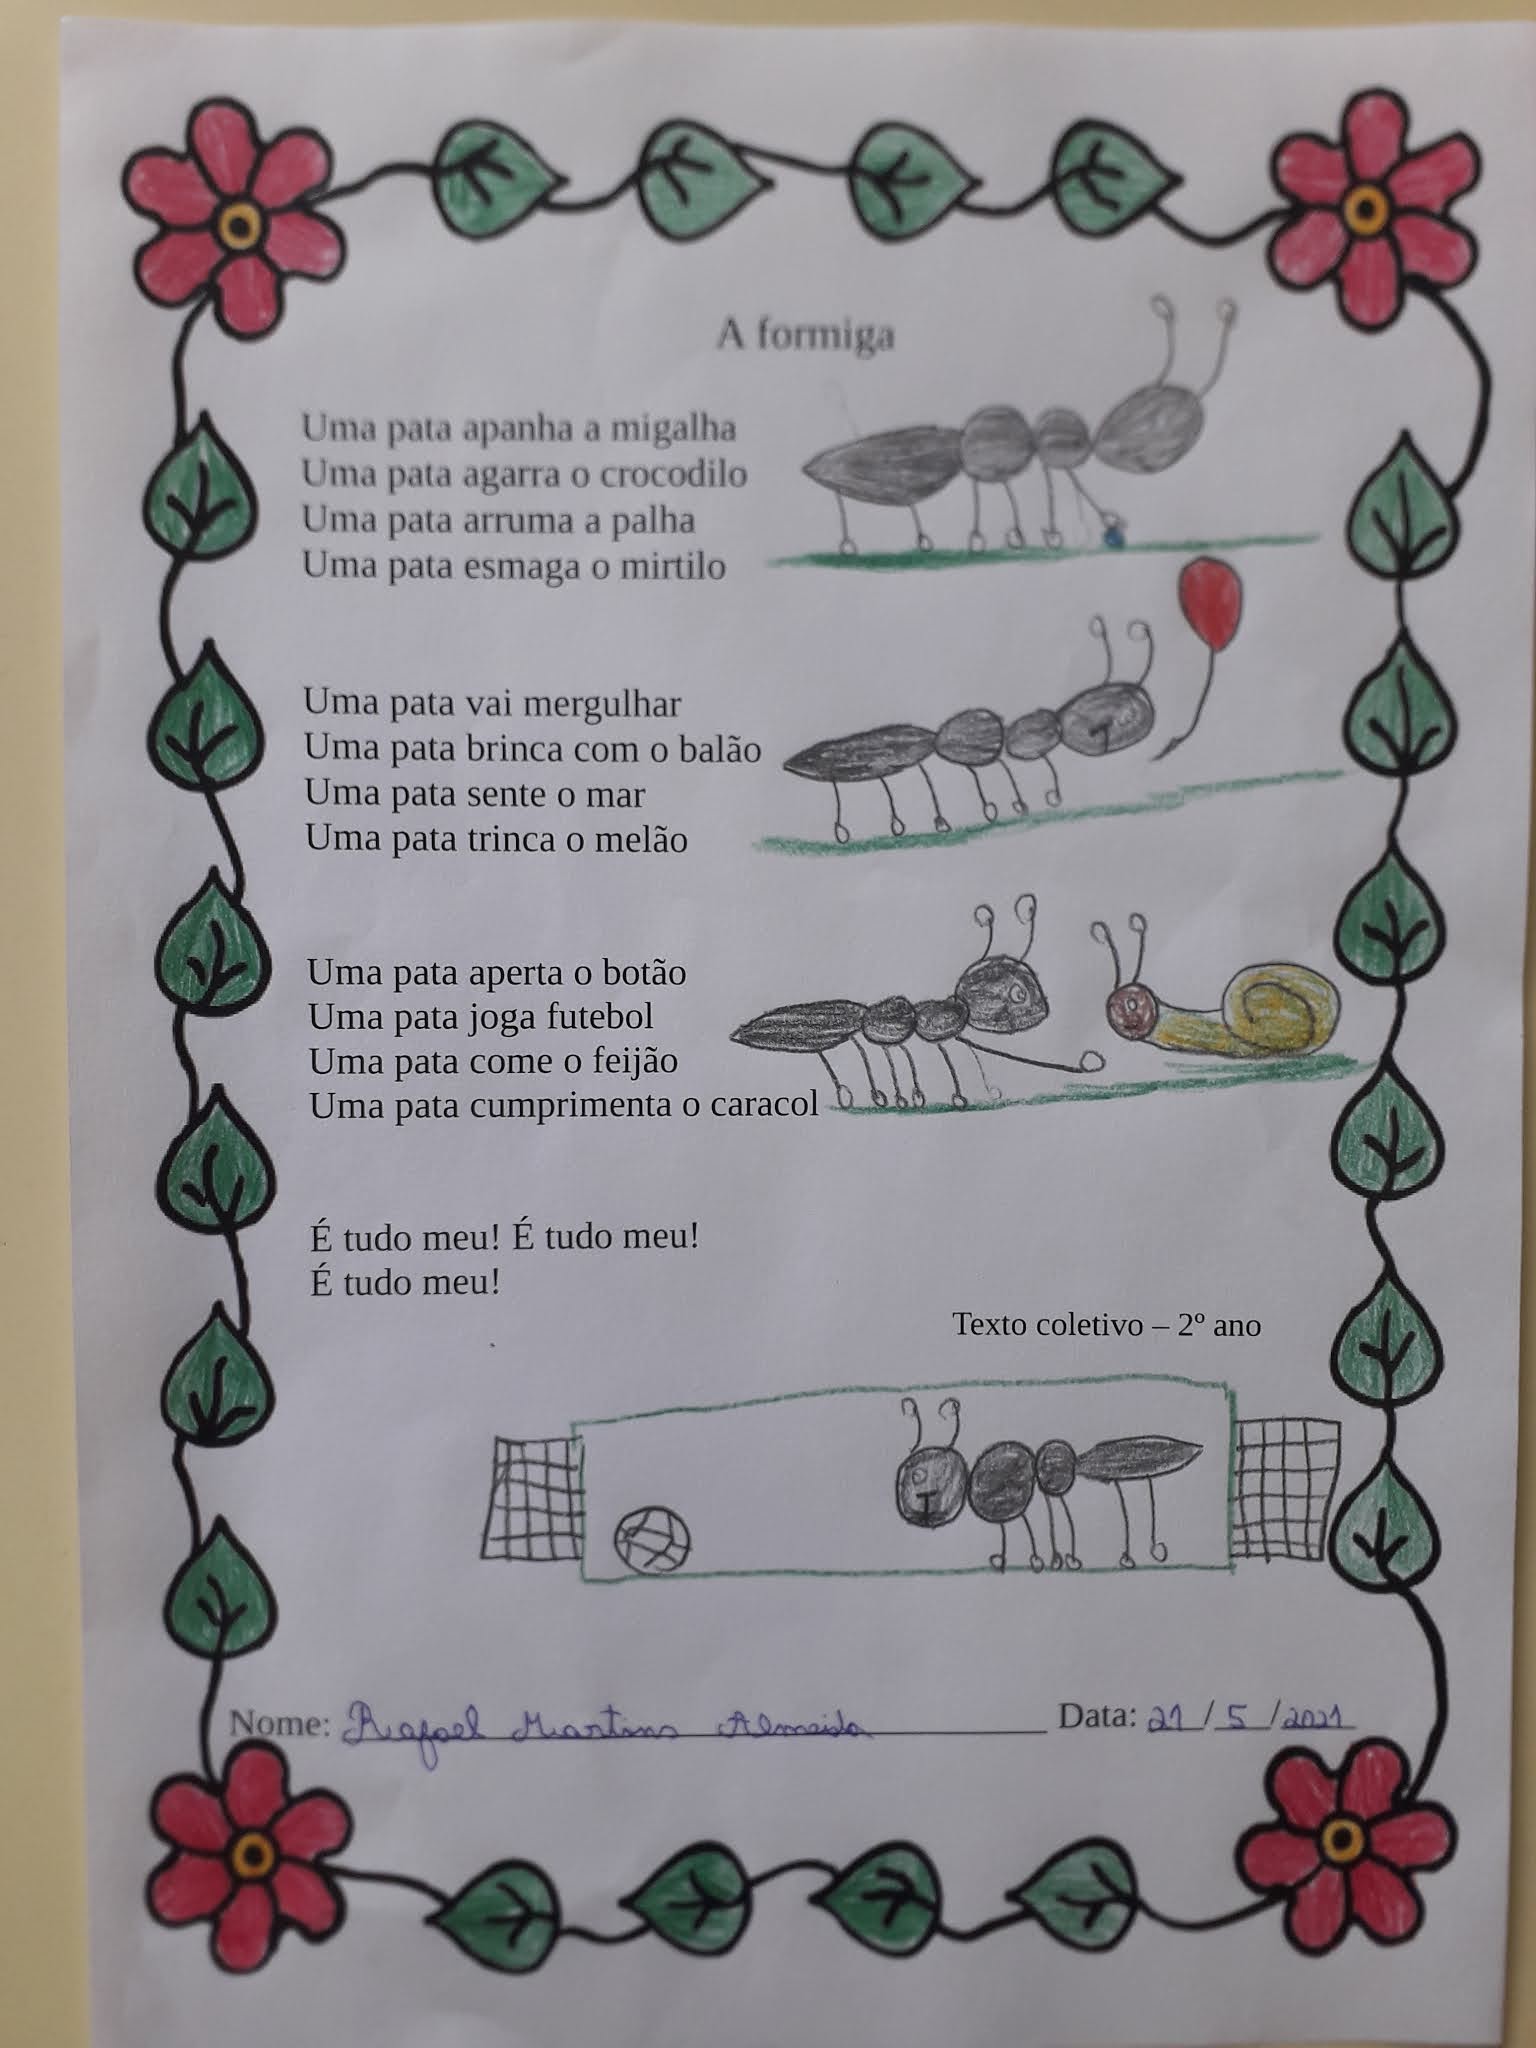 A formiga
Uma pata apanha a migalha
Uma pata agarra o crocodilo
Uma pata arruma a palha
Uma pata esmaga o mirtilo
Uma pata vai mergulhar
Uma pata brinca com o balão
Uma pata sente o mar
Uma pata trinca o melão
Uma pata aperta o botão
Uma pata joga futebol
Uma pata come o feijão
Uma pata cumprimenta o caracol
É tudo meu! É tudo meu!
É tudo meu!
Texto coletivo – 2º ano
Nome: Rafael Martins Almeida Data: 21/5/2021